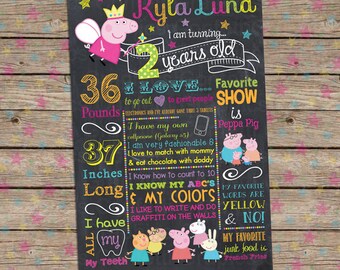 Kyla Lund
I am turning...
2
years old
36
Pounds
37
Inches
Long
ALL
I have
my
My Teeth
I LOVE...
to go out
I have my own
cellphone (Galaxy s3)
I am very fashionable &
love to match with mommy
& eat chocolate with daddy
I know how to count to 10
I KNOW MY ABC'S
& MY COLORS
I LIKE TO WRITE AND DO
GRAFFITI ON THE WALLS
Favorite
SHOW
is
Peppa Pig
MY FAVORITE
WORDS ARE
YELLOW
& NO!
MY FAVORITE
junk food is
French Fries